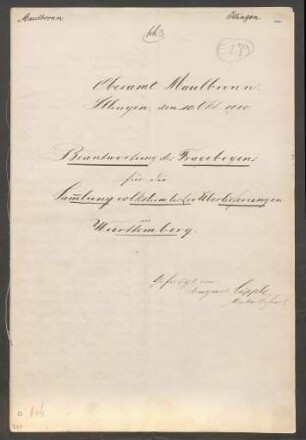 Maulbronn
Illingen
Oberamt Maulbronn.
Illingen, den 10. Okt. 1900.
Beantwortung des Fragebogens
für die
Sam̄lung volkstümlicher Überlieferungen
in
Württemberg.
Gefertigt von
August